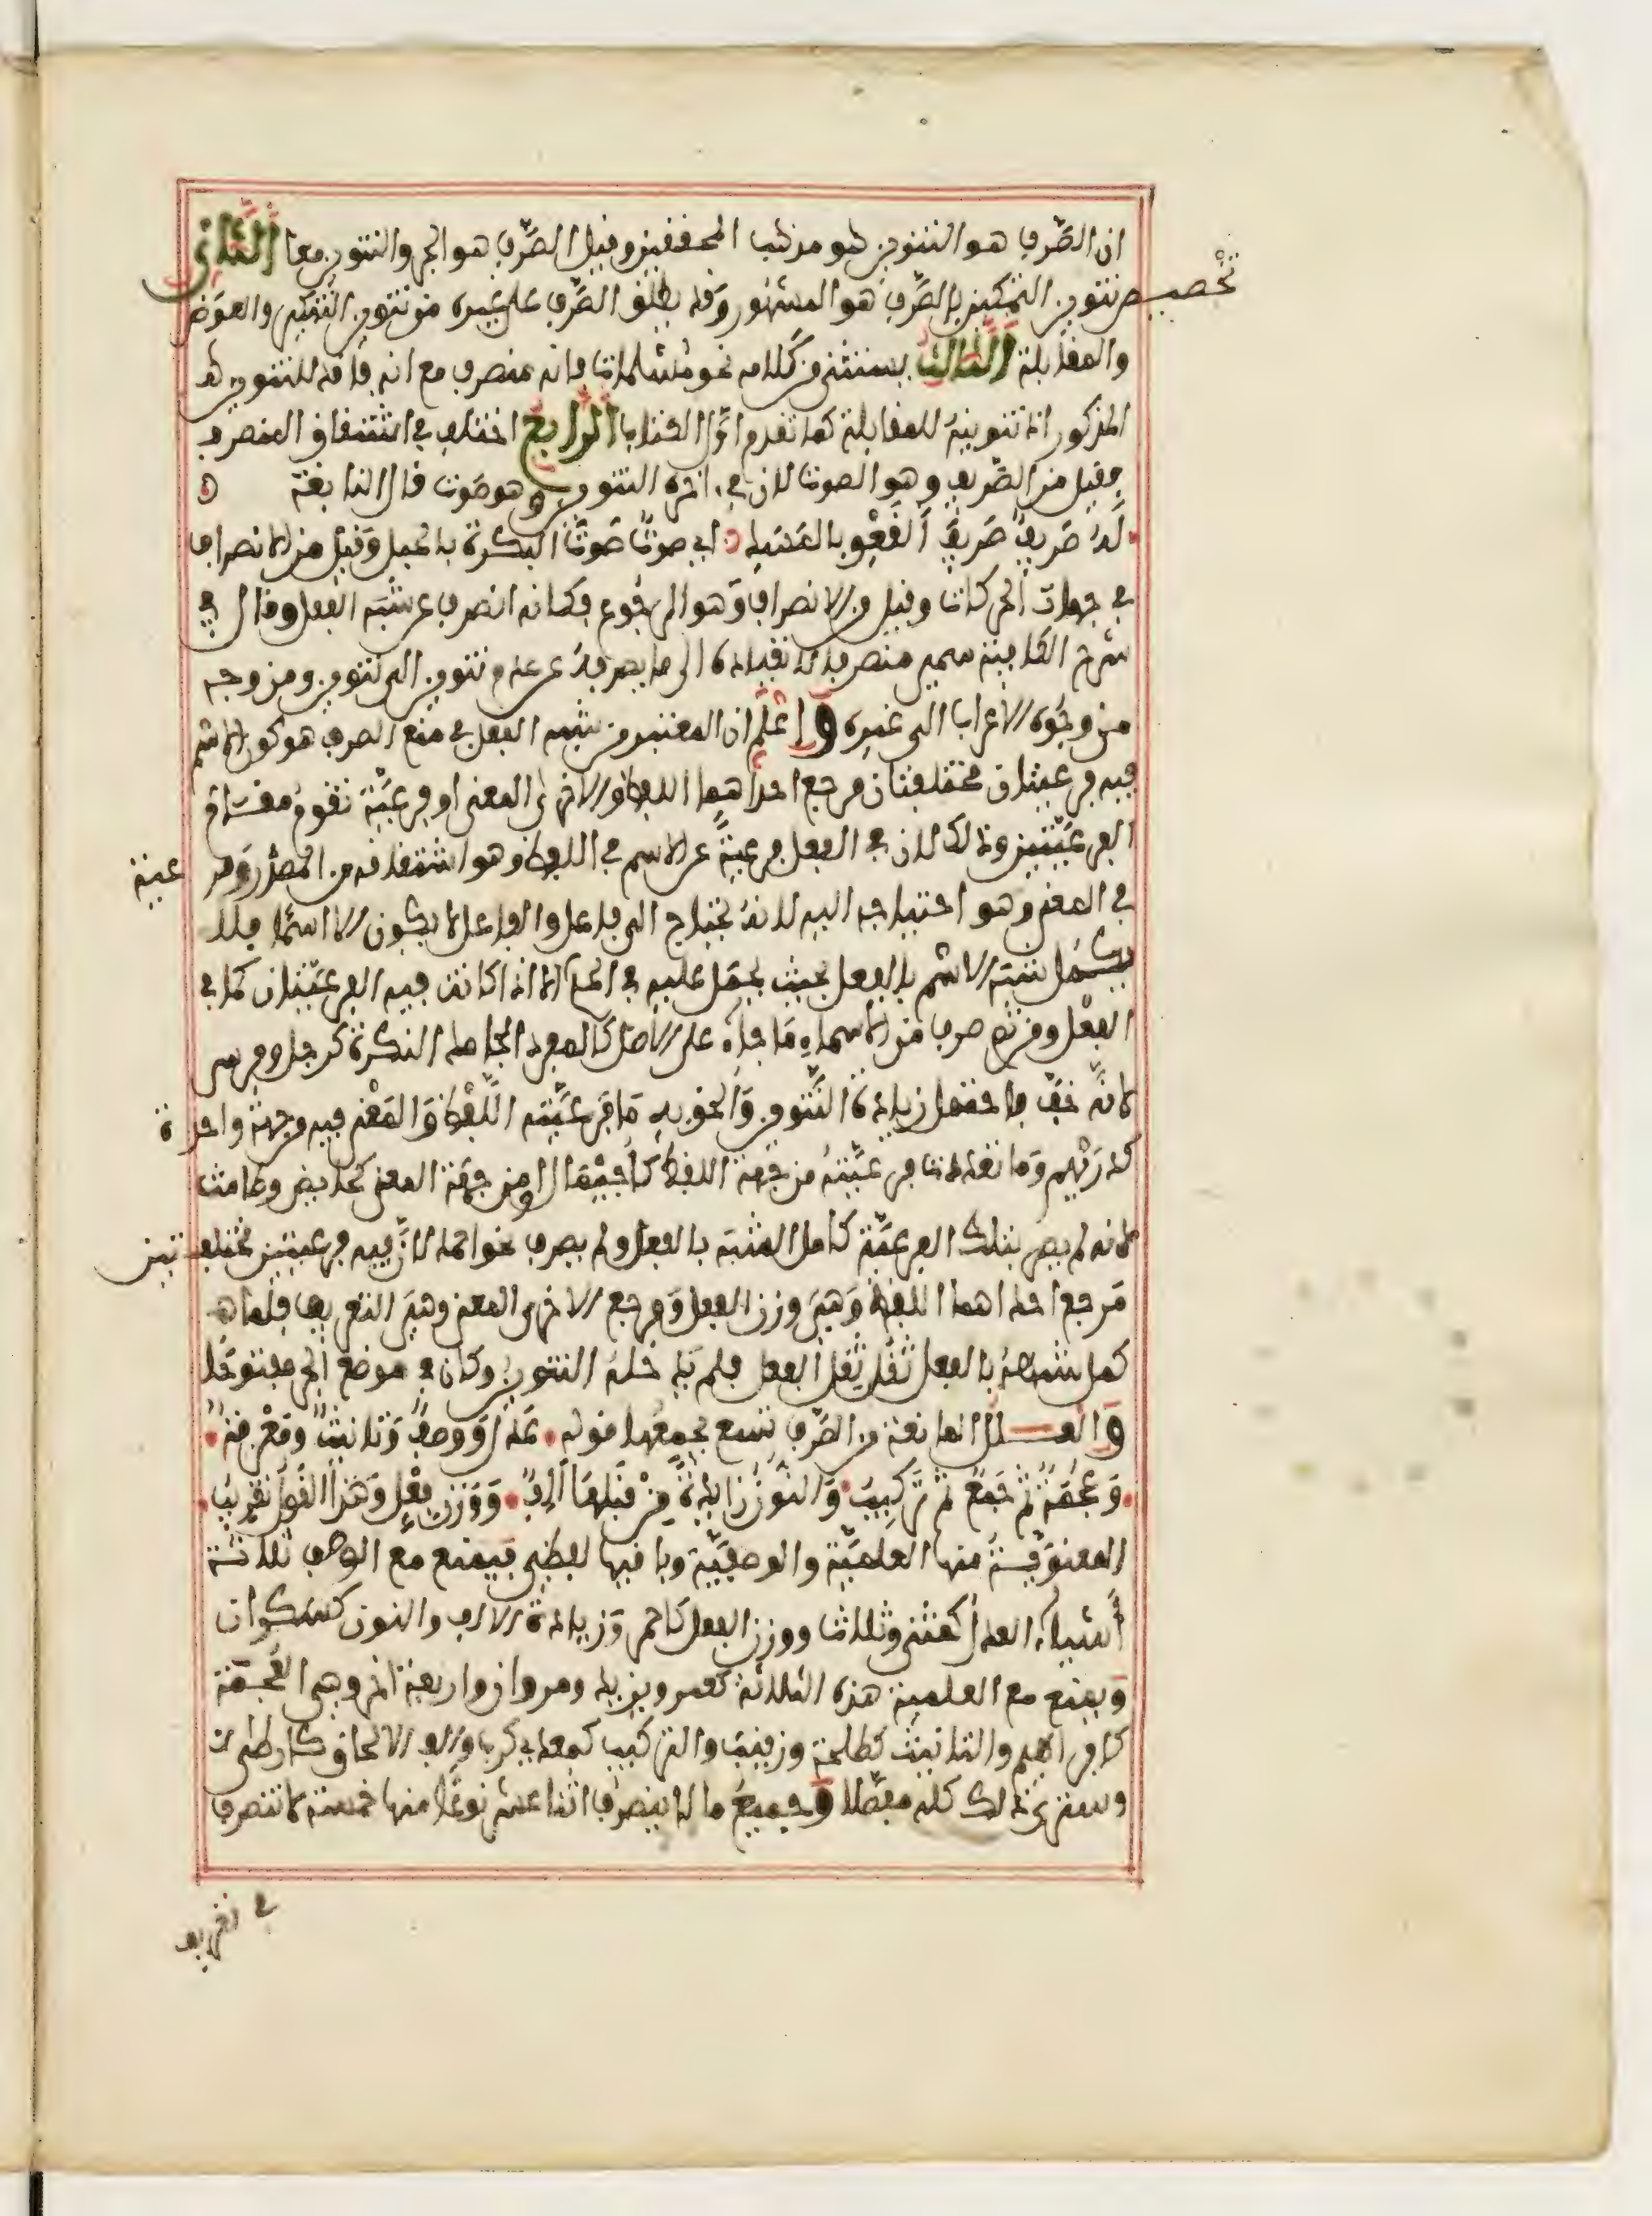 ان الصّرف هو التنوين هو مذهب المحققين وقيل الصّرف هو الجر والتنوين معا الثاني
تخصيص تنوين التمكين بالصّرف هو المشهور وقد يطلق الصّرف على غيره من تنوين التنكير والعوض
والمقابلة الثالث يستثنى من كلامه نحو مسلمات فانه منصرف مع انه فاقد للتنوين
المذكور اذ تنوينه للمقابلة كما تقدم اوّل الكتاب الرابع اختلف في اشتقاق المنصرف
فقيل من الصّريف وهو الصوت لان في اخره التنوين وهو صوت قال النابغة
له صَرِيفٌ صَرِيفَ القَعْوِ بالمَسَدِ اي صوتٌ صوتَ البكرة بالحبل وقيل من الانصراف
في جهات الحركات وقيل من الانصراف وهو الرجوع فكانه انصرف عن شبه الفعل وقال في
شرح الكافية سمي منصرفا لانقياده الى ما يصرفه عن عدم تنوين الى تنوين ومن وجه
من وجوه الاعراب الى غيره واعلم ان المعتبر من شبه الفعل في منع الصرف هو كون الاسم
فيه فرعيتان مختلفتان مرجع احداهما اللفظ والاخرى المعنى او فرعيّة تقوم مقام
الفرعيّتين وذلك لان في الفعل فرعيةً عن الاسم في اللفظ وهو اشتقاقه من المصدر وفرعية
في المعنى وهو احتياجه اليه لانه يحتاج الى فاعل والفاعل لا يكون الا اسما فلا
يكمل شبه الاسم بالفعل بحيث يحمل عليه في الحكم الا اذا كانت فيه الفرعيّتان كما في
الفعل ومن ثم صرف من الاسماء ما جاء على الاصل كالمفرد الجامد النكرة كرجل وفرس
لانه خفّ فاحتمل زيادة التّنوين والحق به ما فرعيّته اللّفظ والمعنى فيه من جهة واحدة
كدريهم وما تعددت فرعيّته من جهة اللفظ كأجيمال او من جهة المعنى كحايض وطامث
لانه لم يصر بتلك الفرعيّة كامل الشبه بالفعل ولم يصرف نحو احمد لانّ فيه فرعيتين مختلفتين
مرجع احداهما اللفظ وهي وزن الفعل ومرجع الاخرى المعنى وهي التعريف فلما
كمل شبهه بالفعل ثقل ثِقَل الفعل فلم يدخله التنوين وكان في موضع الجر مفتوحا
والعلل المانعة من الصّرف تسع يجمعها قوله عدل ووصفٌ وتانيثٌ ومعرفةٌ
وعجمةٌ ثم جمعٌ ثم تركيب والنون زائدةً من قبلها الفٌ ووزن فعلٍ وهذا القول تقريب
المعنويّة منها العلميّة والوصفيّة وباقيها لفظي فيمنع مع الوصف ثلاثة
أشياء العدل كمثنى وثلاث ووزن الفعل كاحمر وزيادة الالف والنون كسكران
ويمنع مع العلمية هذه الثلاثة كعمر ويزيد ومروان واربعة اخر وهي العجمة
كابراهيم والتانيث كطلحة وزينب والتركيب كمعدي كرب والف الالحاق كارطى
وسترى ذلك كله مفصلا وجميع ما لا ينصرف اثنا عشر نوعًا منها خمسة لا تنصرف
في تعريف